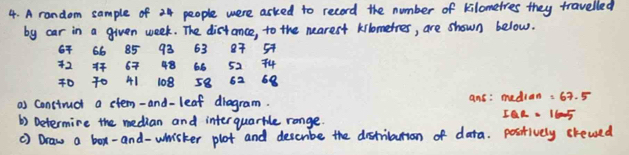 4. A random sample of 24 people were asked to record the number of kilometres they travelled
by car in a given week. The distance, to the nearest kilometres, are shown below.
67 66 85 93 63 87 57
72 77 67 48 66 52 74
70 70 41 108 58 62 68
a) Construct a stem-and-leaf diagram. ans: median = 67.5
b) Determine the median and interquartile range. IQR = 16.5
c) Draw a box-and-whisker plot and describe the distribution of data. positively skewed